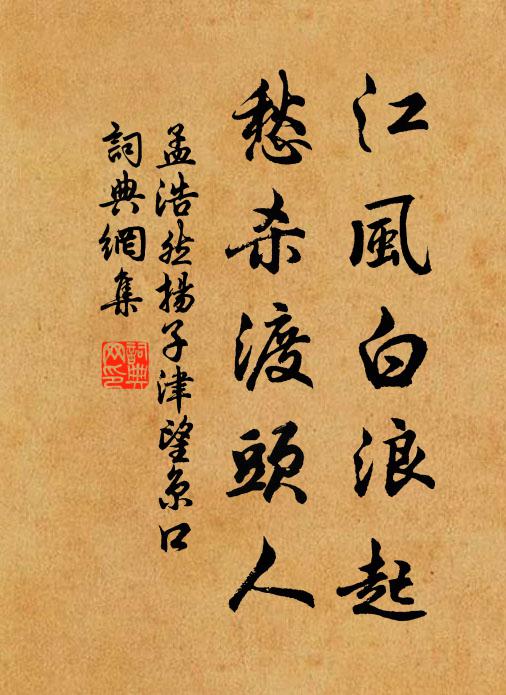 江風白浪起
愁杀渡頭人
孟浩然揚子津望京口
詞典網集
詞典網印